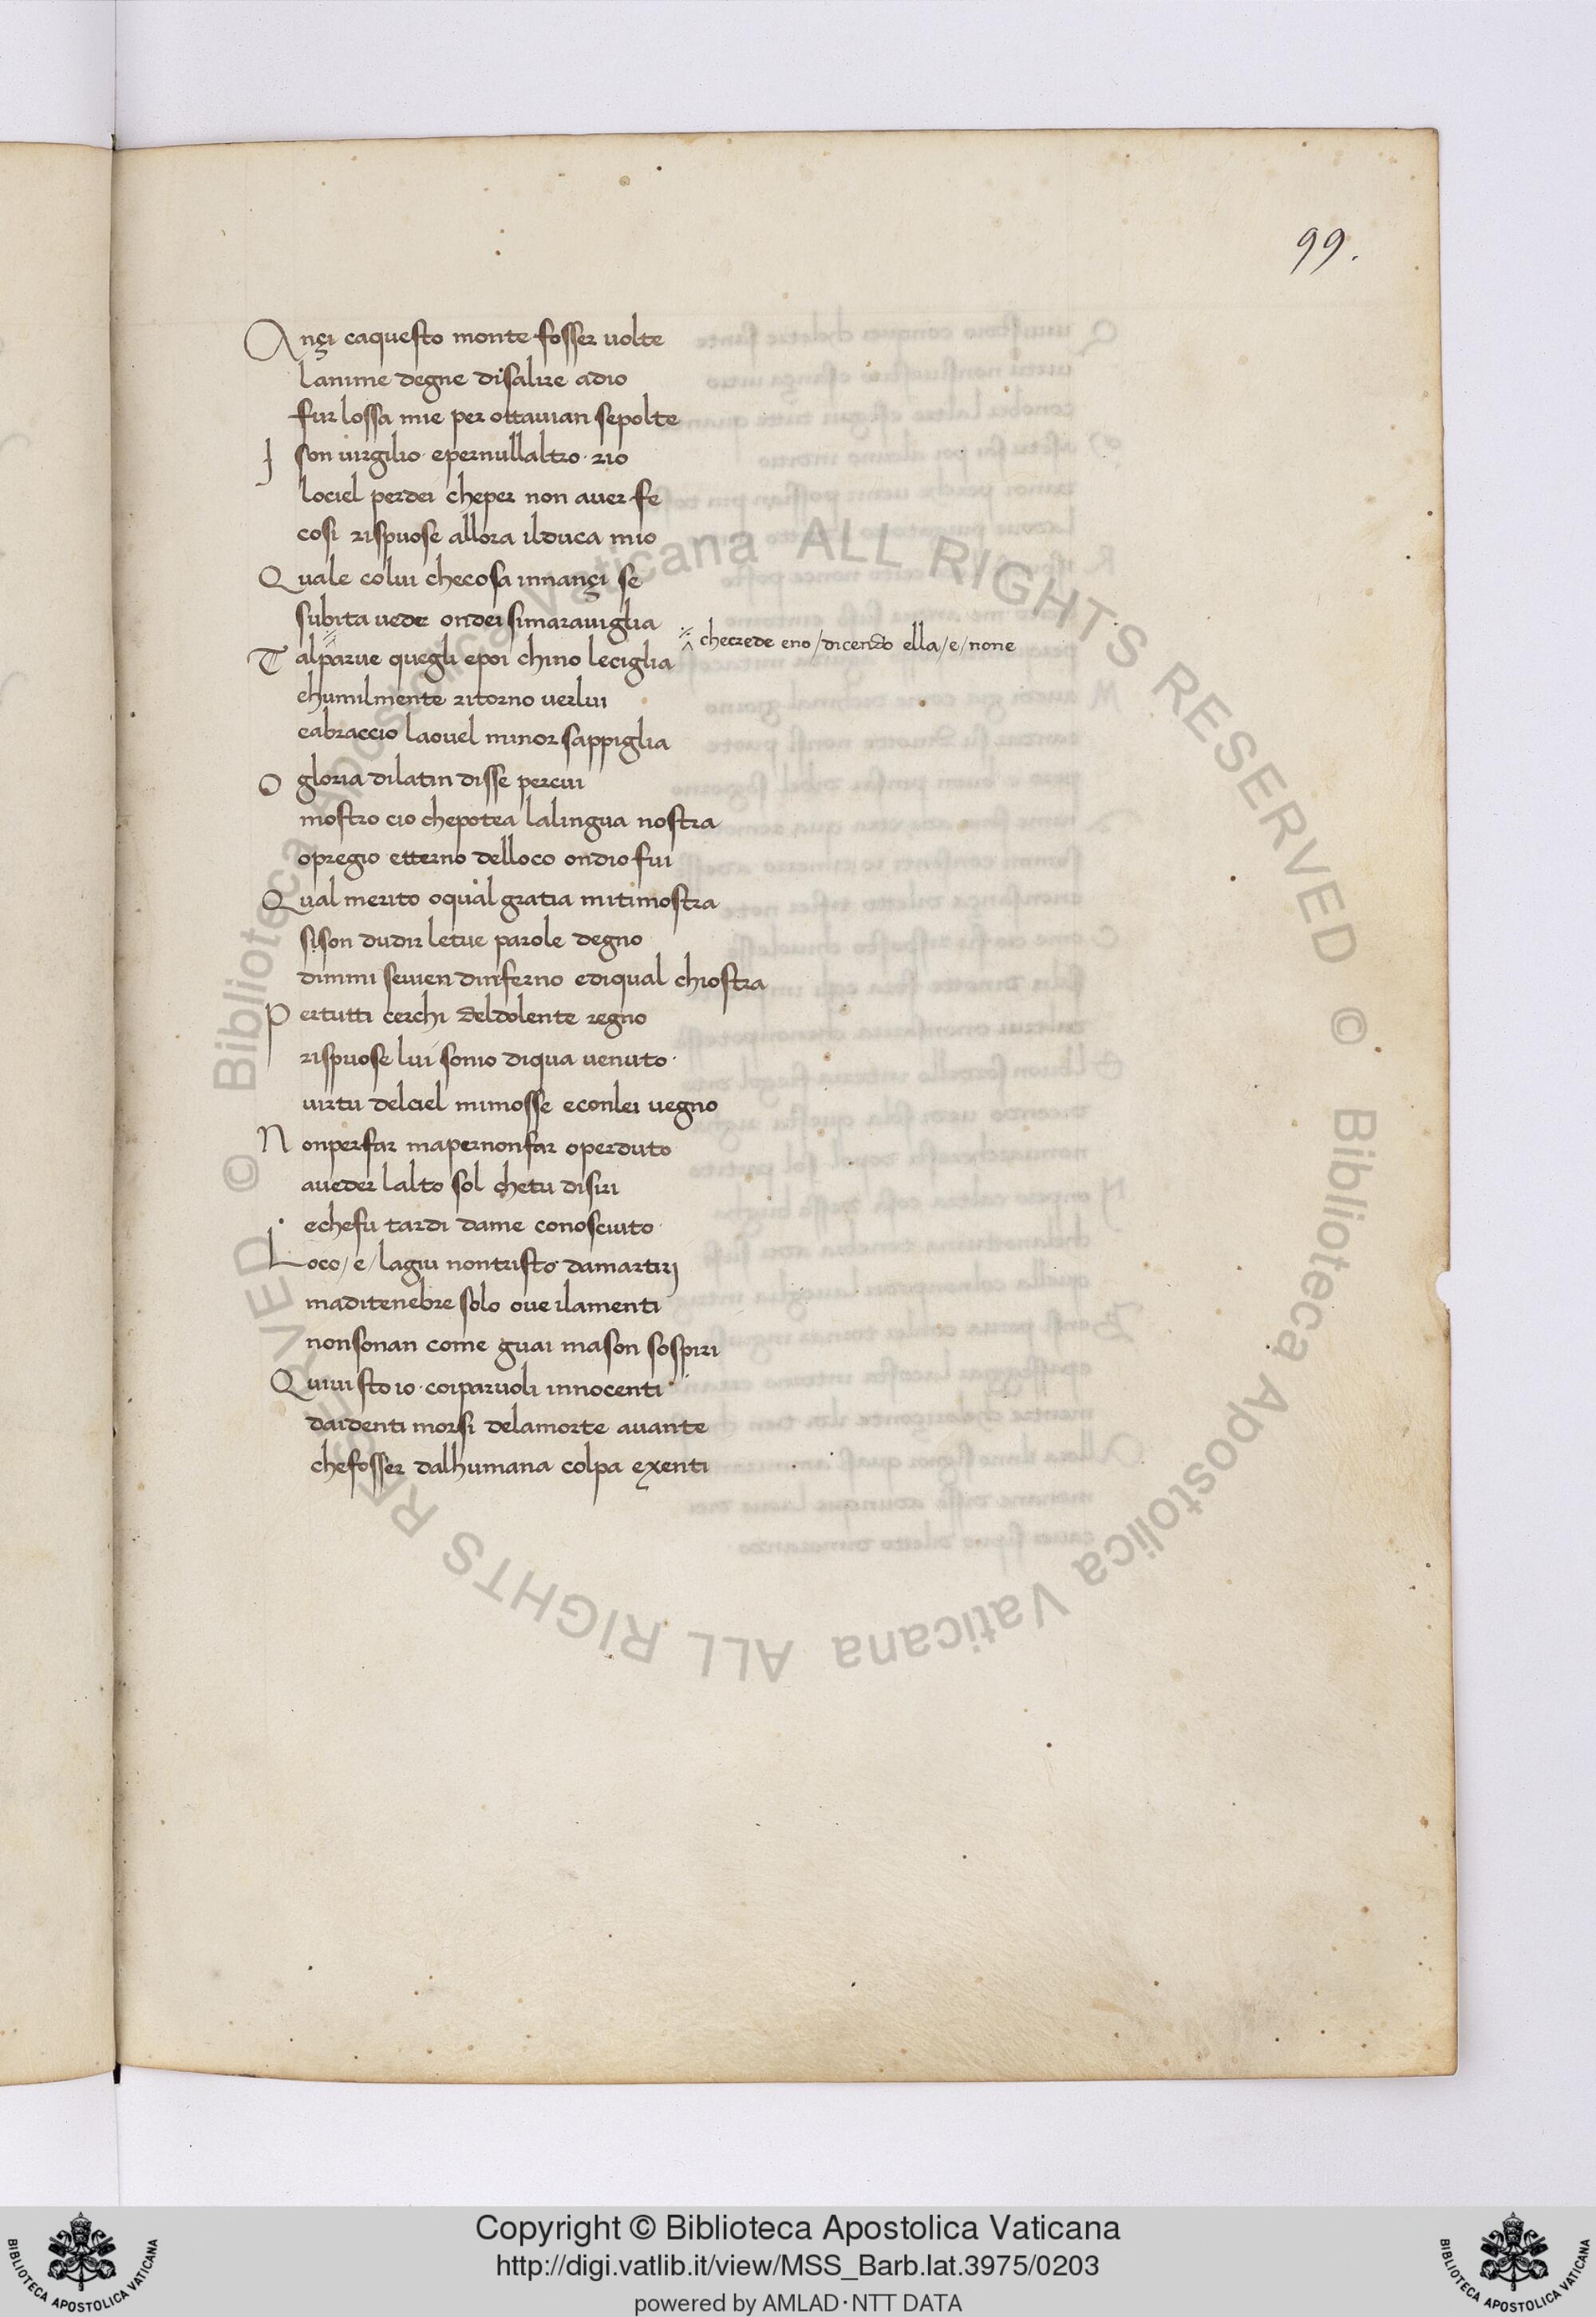 99.
Ançi caquesto monte fosser volte
lanime degne disalire adio
fur lossa mie per ottavian sepolte
I son virgilio · epernullaltro · rio
lociel perdei cheper non aver fe
cosi rispuose allora ilduca mio
Quale colui checosa innançi se
subita vede ondei simaraviglia
checrede eno / dicendo ella / e / none
Talparve quegli epoi chino leciglia
ehumilmente ritorno verlui
eabraccio laovel minor sappiglia
O gloria dilatin disse percui
mostro cio chepotea lalingua nostra
opregio etterno delloco ondio fui
Qual merito oqual gratia mitimostra
sison dudir letue parole degno
dimmi sevien dinferno ediqual chiostra
Pertutti cerchi deldolente regno
rispuose lui sonio diqua venuto ·
virtu delciel mimosse econlei vegno
Nonperfar mapernonfar operduto
aveder lalto sol chetu disiri
echefu tardi dame conosciuto ·
Loco / e / lagiu nontristo damartirj
maditenebre solo ove ilamenti
nonsonan come guai mason sospiri
Quivi sto io · coiparvoli innocenti
daidenti morsi delamorte avante
chefosser dalhumana colpa exenti
© Biblioteca Apostolica Vaticana ALL RIGHTS RESERVED
© Biblioteca Apostolica Vaticana ALL RIGHTS RESERVED
Copyright © Biblioteca Apostolica Vaticana
http://digi.vatlib.it/view/MSS_Barb.lat.3975/0203
powered by AMLAD·NTT DATA
BIBLIOTECA APOSTOLICA VATICANA
BIBLIOTECA APOSTOLICA VATICANA